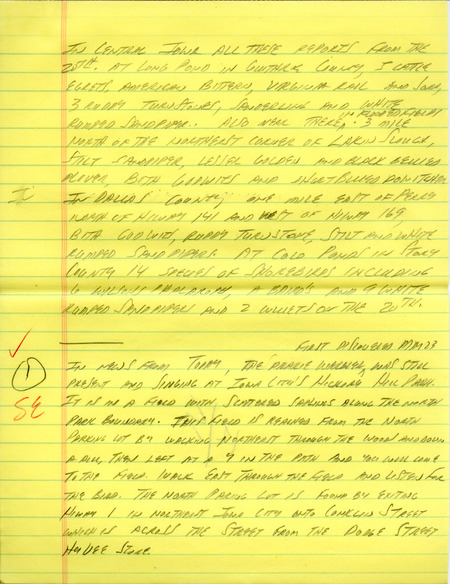 In Central Iowa all these reports from the
25th. At Long Pond in Guthrie County, 1 Cattle
Egrets, American Bittern, Virginia Rail and Sora,
3 Ruddy Turnstones, Sanderling and White
Rumped Sandpiper. Also near there, in flooded fields 3 mile
north of the northeast corner of Lakin Slough,
Stilt Sandpiper, Lesser Golden and Black Bellied
Plover, Both Godwits and Short Billed Dowitcher
In Dallas County, one mile east of Perry
north of Hiway 141 and west of Hiway 169,
Both Godwits, Ruddy Turnstone, Stilt and White
Rumped Sandpipers. At Colo Ponds in Story
County 14 species of Shorebirds including
6 Wilsons Phalarope, a Bairds and 9 White
Rumped Sandpipers and 2 Willets on the 20th.
First Discovered May 23
In news from today, the Prairie Warbler, was still
present and singing at Iowa City's Hickory Hill Park.
It is in a field with scattered saplings along the north
park boundary. This field is reached from the north
parking lot by walking northeast through the wood and down
a hill, then left at a Y in the path and you will come
to the field. Walk east through the field and listen for
the bird. The north paring lot is found by exiting
Hiway 1 in northeast Iowa City onto Conklin Street
which is across the street from the Dodge Street
HyVee Store.
1
SE